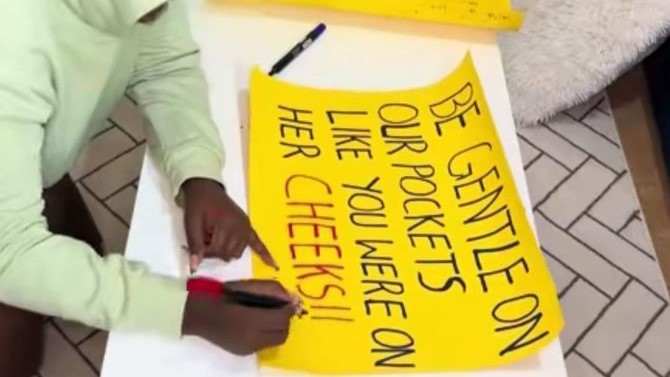 BE GENTLE ON
OUR POCKETS
LIKE YOU WERE ON
HER CHEEKS!!